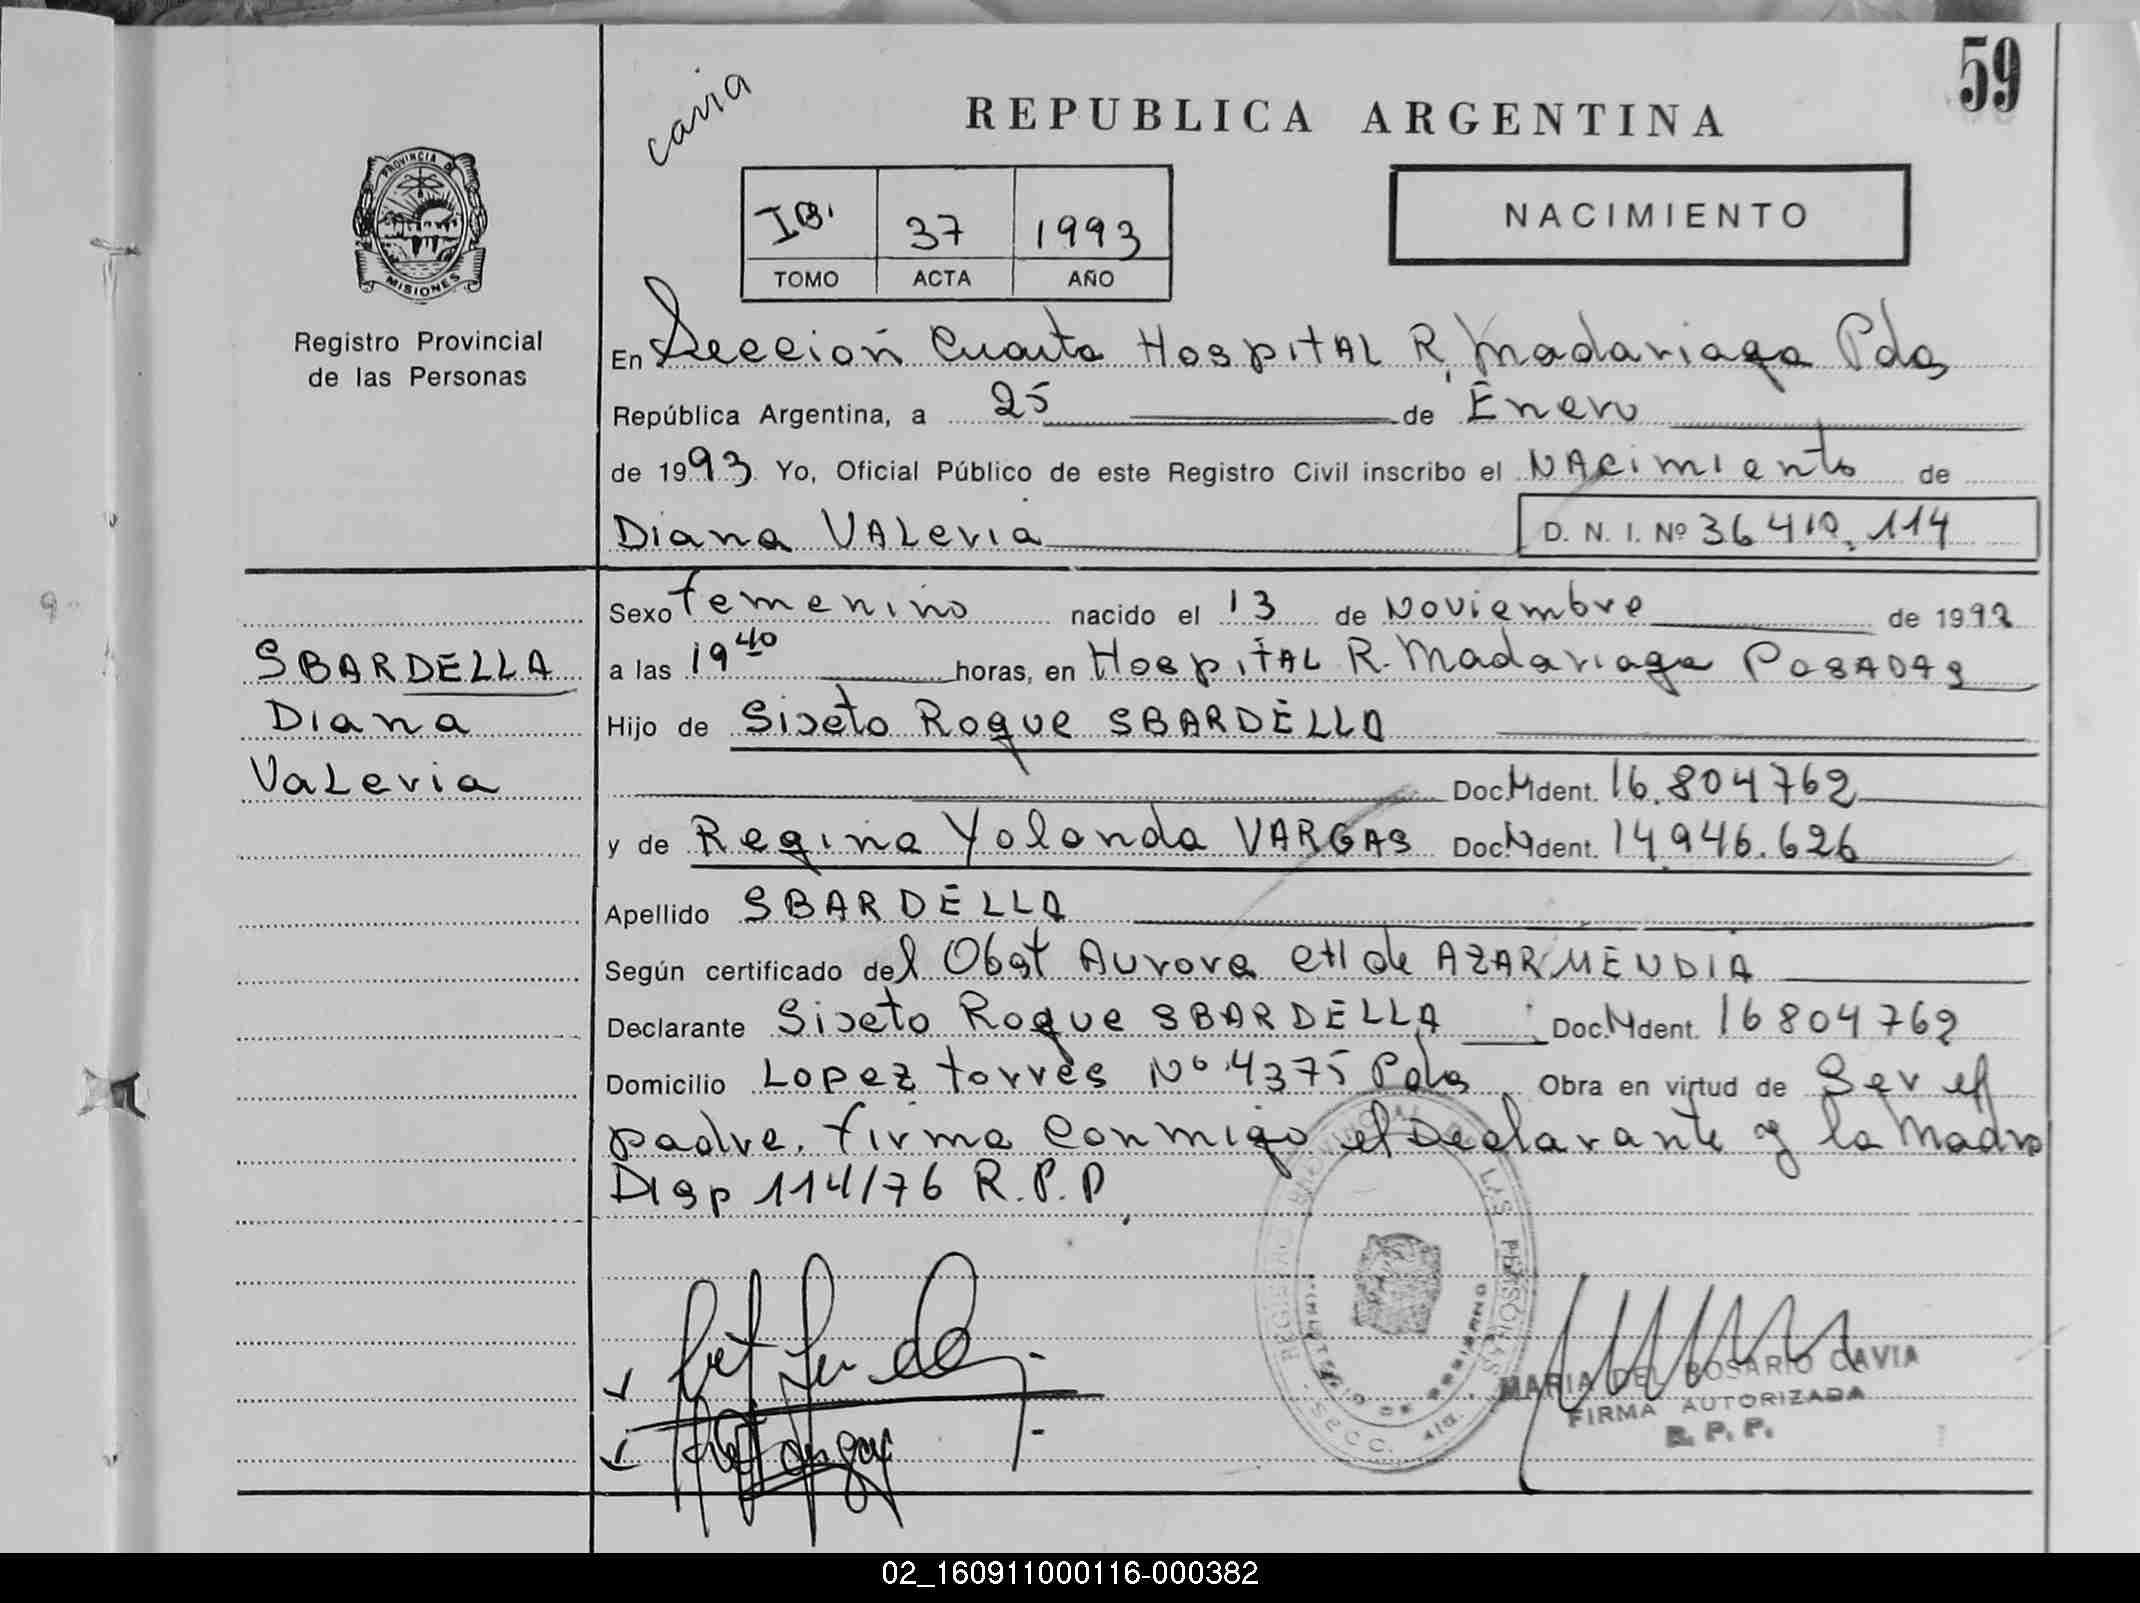 59
cavia
REPUBLICA ARGENTINA
PROVINCIA DE
MISIONES
IB. 37 1993
TOMO ACTA AÑO
NACIMIENTO
Registro Provincial
de las Personas
En Seccion Cuarta Hospital R. Madariaga Pdas
República Argentina, a 25 de Enero
de 1993 Yo, Oficial Público de este Registro Civil inscribo el NAcimiento de
Diana VALeria D. N. I. Nº 36.410.114
Sexo femenino nacido el 13 de Noviembre de 1992
a las 19 40 horas, en Hospital R. Madariaga POSADAS
SBARDELLA
Diana
Valeria
Hijo de Sixto Roque SBARDELLA
Doc. M Ident. 16.804762
y de Regina Yolanda VARGAS Doc. N Ident. 14.946.626
Apellido SBARDELLA
Según certificado del Obst Aurora de AZARMENDIA
Declarante Sixto Roque SBARDELLA Doc. N Ident. 16804762
Domicilio Lopez torres Nº 4375 Pdas Obra en virtud de Ser el
padre. firma conmigo el Declarante y la Madre
Disp 114/76 R.P.P.
REGISTRO PROVINCIAL DE LAS PERSONAS
MINISTERIO DE GOBIERNO
Secc. 4ta.
MARIA DEL ROSARIO CAVIA
FIRMA AUTORIZADA
R. P. P.
02_160911000116-000382